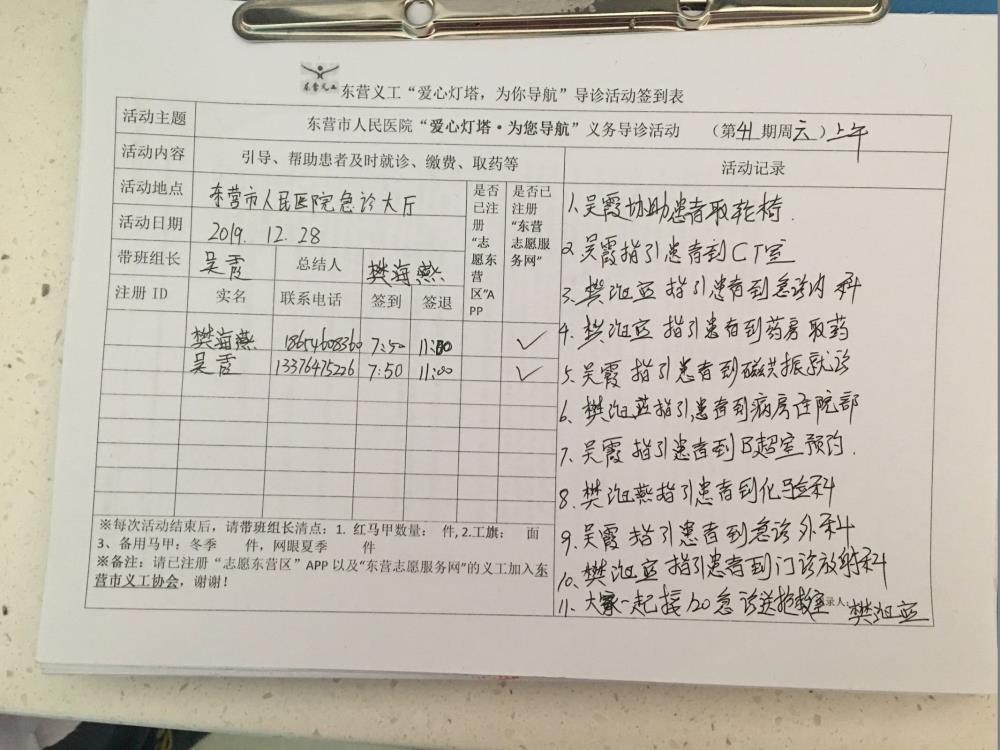 东营义工
东营义工“爱心灯塔，为你导航”导诊活动签到表
活动主题 东营市人民医院“爱心灯塔·为您导航”义务导诊活动 （第41期周六）上午
活动内容 引导、帮助患者及时就诊、缴费、取药等 活动记录
活动地点 东营市人民医院急诊大厅
活动日期 2019. 12. 28
带班组长 吴霞 总结人 樊海燕
注册 ID 实名 联系电话 签到 签退
是否已注册“志愿东营区”APP
是否已注册“东营志愿服务网”
樊海燕 18654608360 7:50 11:00 ✓
吴霞 13376475226 7:50 11:00 ✓
1、吴霞协助患者取轮椅.
2、吴霞指引患者到CT室
3、樊海燕指引患者到急诊内科
4、樊海燕指引患者到药房取药
5、吴霞指引患者到磁共振就诊
6、樊海燕指引患者到病房住院部
7、吴霞指引患者到B超室预约.
8、樊海燕指引患者到化验科
9、吴霞指引患者到急诊外科
10、樊海燕指引患者到门诊放射科
11、大家一起接120急诊送抢救室
录人 樊海燕
※每次活动结束后，请带班组长清点：1. 红马甲数量： 件,2.工旗： 面
3、备用马甲：冬季 件，网眼夏季 件
※备注：请已注册“志愿东营区”APP 以及“东营志愿服务网”的义工加入东
营市义工协会，谢谢！